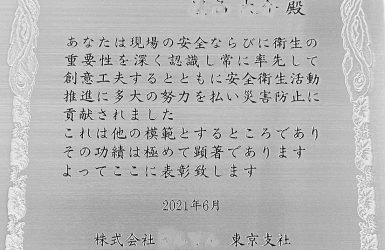 殿
あなたは現場の安全ならびに衛生の
重要性を深く認識し常に率先して
創意工夫するとともに安全衛生活動
推進に多大の努力を払い災害防止に
貢献されました
これは他の模範とするところであり
その功績は極めて顕著であります
よってここに表彰致します
2021年6月
株式会社 東京支社